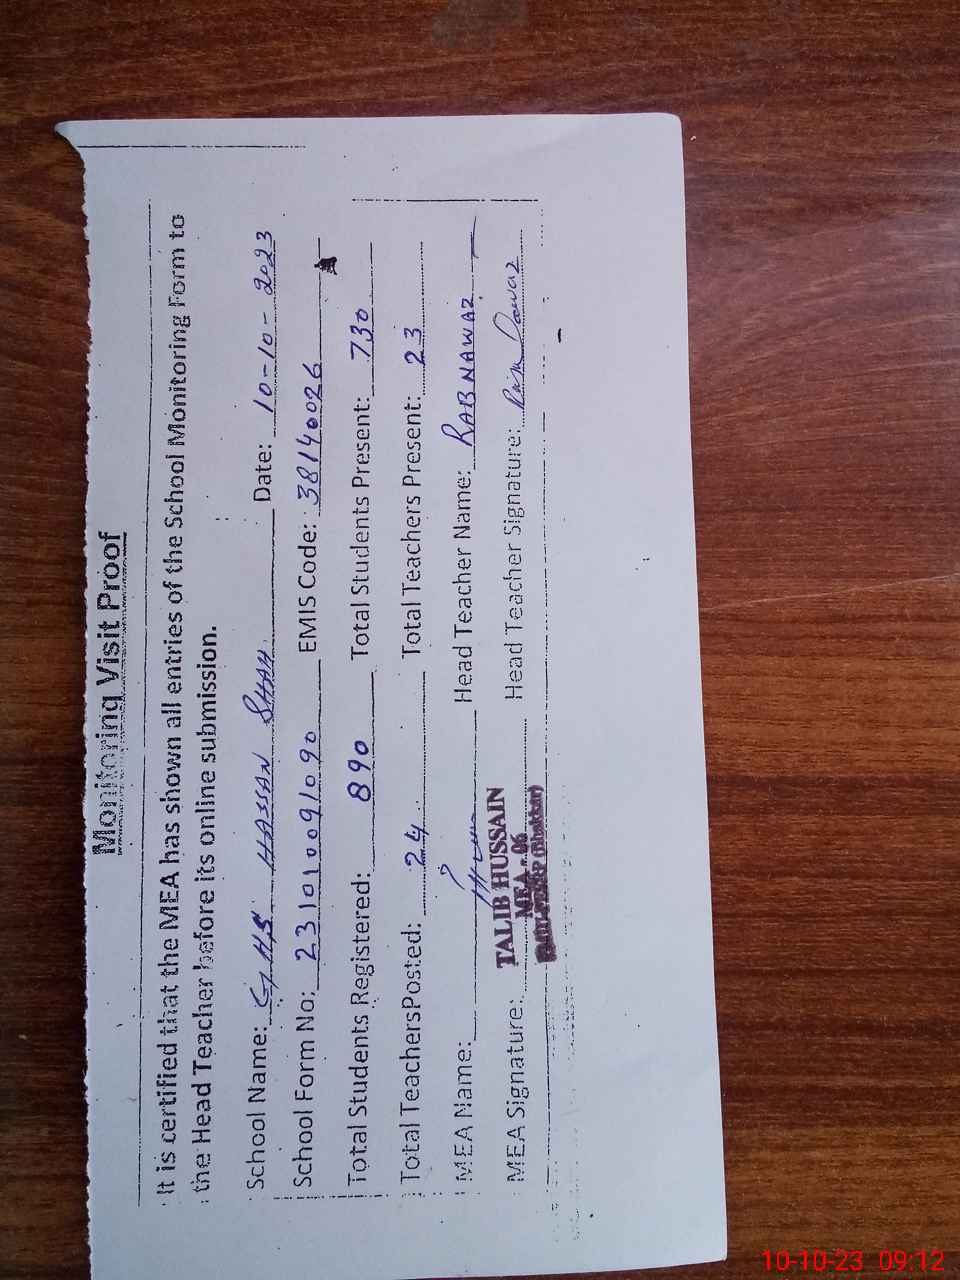 Monitoring Visit Proof
It is certified that the MEA has shown all entries of the School Monitoring Form to
the Head Teacher before its online submission.
School Name: G.H.S HASSAN SHAH Date: 10-10-2023
School Form No: 23101091090 EMIS Code: 38140026
Total Students Registered: 890 Total Students Present: 730
Total TeachersPosted: 24 Total Teachers Present: 23
MEA Name: Head Teacher Name: RABNAWAZ
MEA Signature: Head Teacher Signature:
TALIB HUSSAIN
MEA - 06
(Bhakkar)
10-10-23 09:12